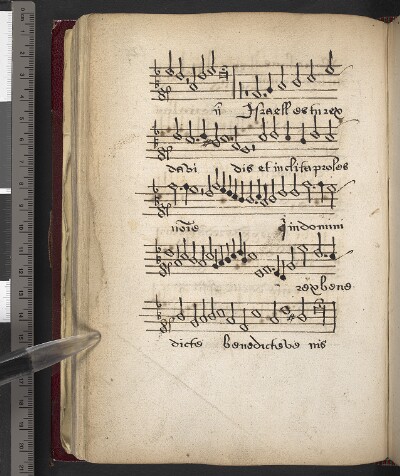 ii Israell es tu rex
davi dis et inclita proles
noīe qui in domini
rex bene
dicte benedicte ve nis